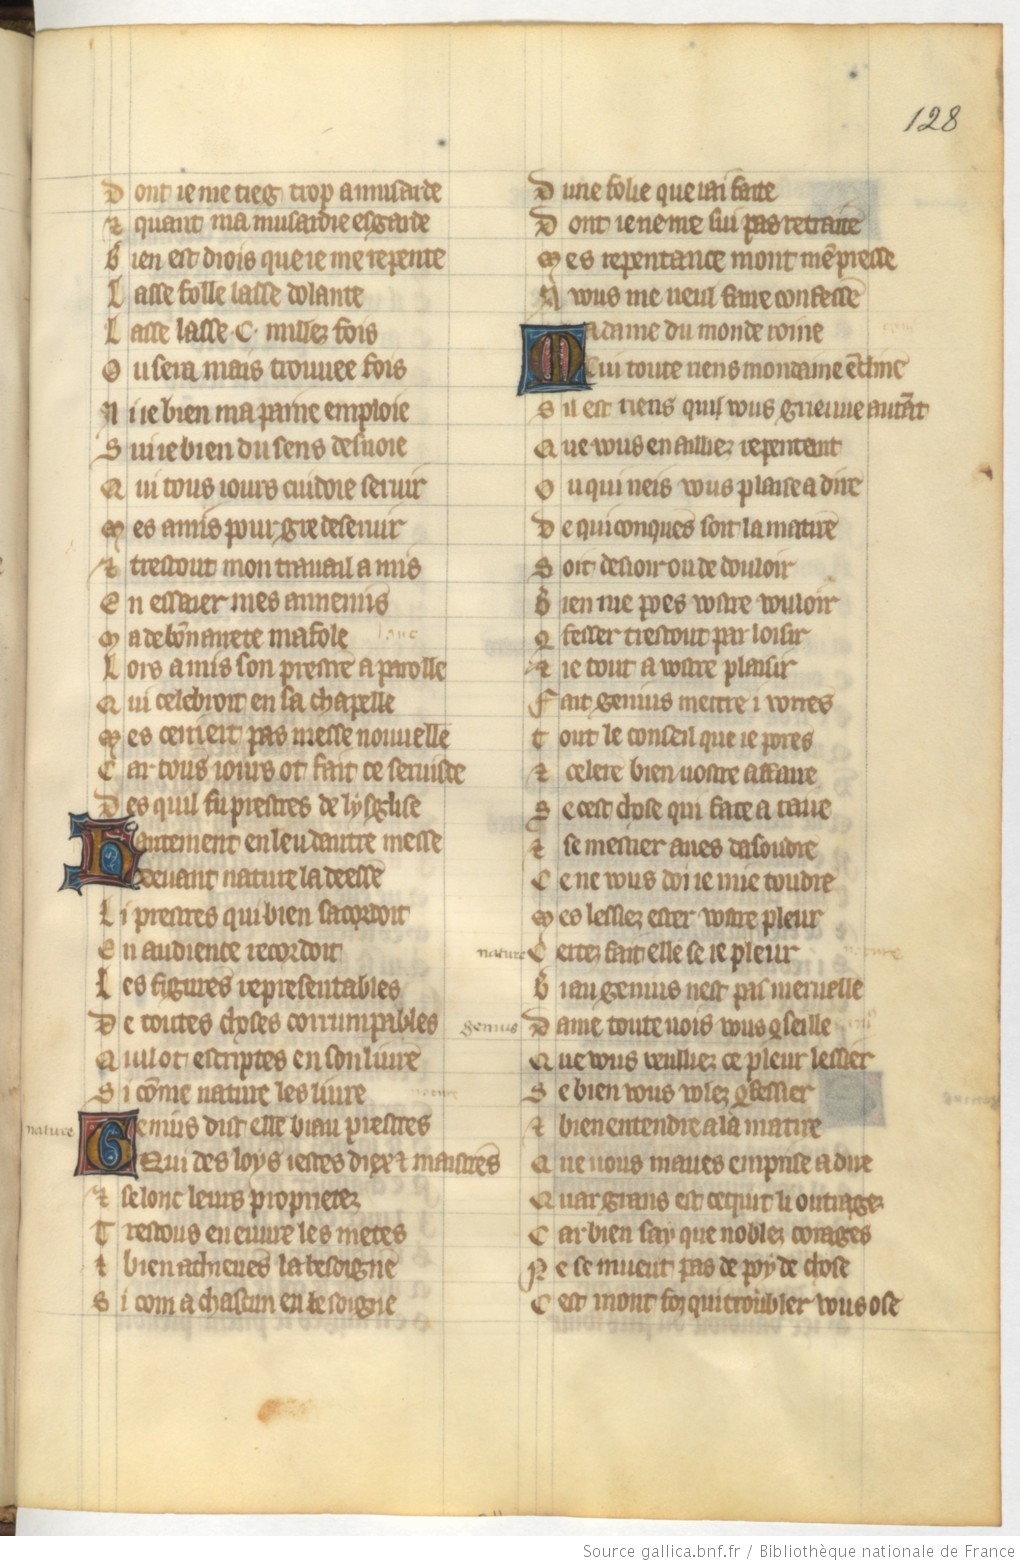 128
Dont ie me tieg trop a musarde
⁊ quant ma musardie esgarde
Bien est drois que ie me repente
Lasse folle lasse dolante
Lasse lasse .C. millez fois
Ou sera mais trouuee fois
Ni ie bien ma paine emploie
Sui ie bien du sens desuoie
Qui tous iours cuidoie seruir
Mes amis pour gre deseruir
⁊ trestout mon trauail a mis
En essaier mes annemis
Ma debōnairete mafole
Lors a mis son prestre a parolle
Qui celebroit en sa chapelle
Mes ce niert pas messe nouuelle
Car tous iours ot fait ce seruise
Des quil fu prestres de lysglise
Hautement en leu dautre messe
Deuant nature la deesse
Li prestres qui bien sacordoit
En audience recordoit
Les figures representables
De toutes choses corrumpables
Quil ot escriptes en son liure
Si cōme nature les liure
nature
Genius dist elle biau prestres
Qui des loys iestes diex ⁊ maistres
⁊ selonc leurs proprietez
Trestous en euure les metes
⁊ bien acheues la besoigne
Si com a chascun en besoigne
Dune folie que iai faite
Dont ie ne me sui pas retraite
Mes repentance mont mē presse
A vous me veul faire confesse
Madame du monde roine
Cui toute riens mondaine ēcline
Sil est riens quil vous grieuue autāt
Que vous en ailliez repentant
Ou qui neis vous plaise a dire
De quiconques soit la matire
Soit desioir ou de douloir
Bien me poes vostre vouloir
Qfesser trestout par loisir
⁊ ie tout a vostre plaisir
Fait genius mettre i vorres
Tout le conseil que ie porres
⁊ celere bien vostre affaire
Se cest chose qui face a taire
⁊ se mestier aues dasoudre
Ce ne vous doi ie mie toudre
Mes lessiez ester vostre pleur
nature
Certez fait elle se ie pleur
Biau genius nest pas merueille
genius
Dame toute uois vous qseille
Que vous veulliez ce pleur lessier
Se bien vous volez qfessier
⁊ bien entendre a la matire
Que vous maues emprise a dire
Quar grans est ce cuit li outragez
Car bien say que noblez corages
Ne se muent pas de poy de chose
Cest mont foz qui troubler vous ose
Source gallica.bnf.fr / Bibliothèque nationale de France